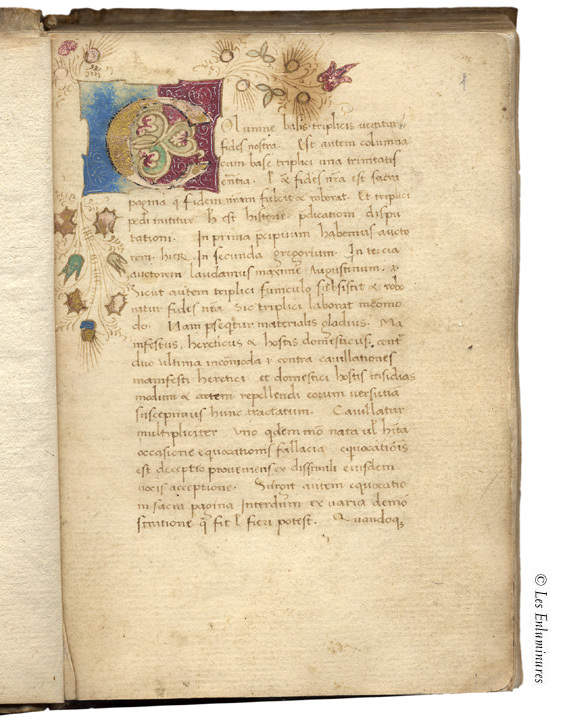 Columne basis triplicis innititur
fides nostra. Est autem columna
cum base triplici una trinitatis
fides nra est sacra
pagina q fidem nram fulcit & roborat. Et triplici
pedi innititur. h est historie, pdicationi dispu
tationi. In prima pcipuum habemus aucto
rem. In secunda gregorium. In tercia
auctorem laudamus maxime Augustinum.
Sicut autem triplici funiculo subsistit & robo
ratur fides nra. Sic triplici laborat incomo
do. Nam pseqtur materialis gladius. Ma
nifestus, hereticus & hostis domesticus. cont
duo ultima incomoda & contra cauillationes
manifesti heretici et domestici hostis insidias
modum & artem repellendi eorum versutia
suscepimus hunc tractatum. Cauillatur
multipliciter uno qdem mo nata ul hita
occasione equocationis fallacia equocationis
est deceptio proueniens ex dissimili eiusdem
uocis acceptione. Surgit autem equocatio
in sacra pagina Interdum ex uaria demo
stratione q fit l fieri potest. Quandoq
© Les Enluminures